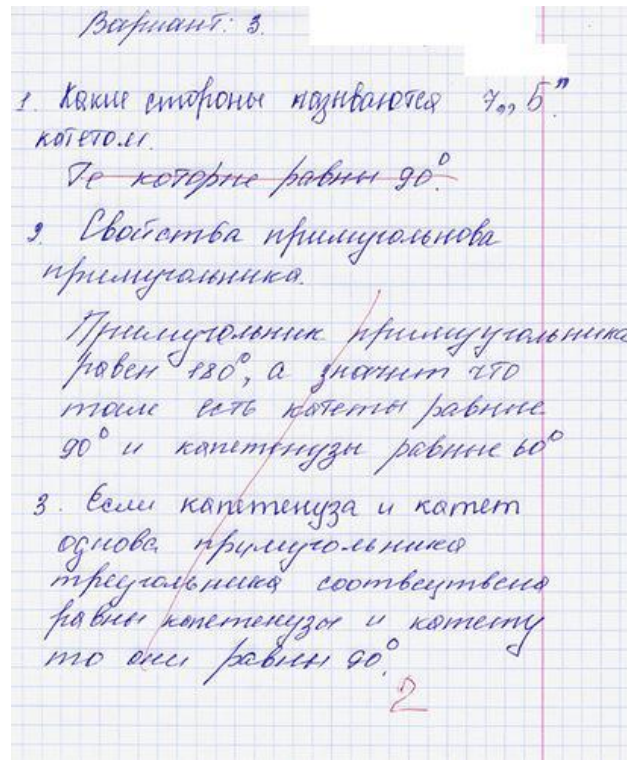 Вариант: 3.
1. Какие стороны называются 7 „Б".
катетом.
Те которые равны 90°.
2. Свойства примуголь­нова
примуголь­ника.
Примугольник примуугольника
равен 180°, а значит что
там есть катеты равные
90° и капетенузы равные 60°
3. Если капетенуза и катет
однова примугольника
треугольника соотвецтвена
равны капетенузы и катету
то они равны 90°.
2